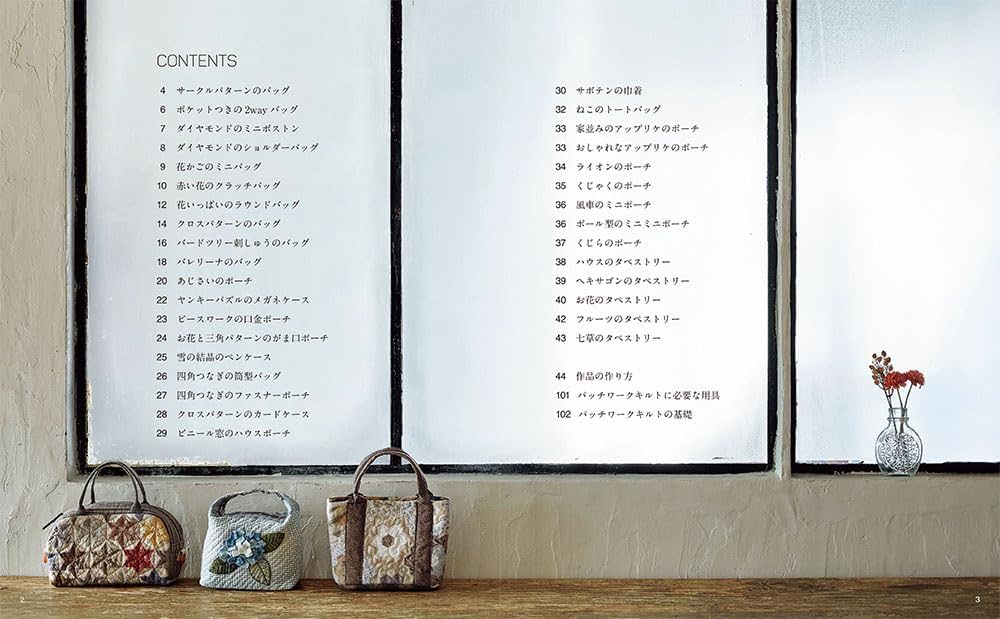 CONTENTS
4 サークルパターンのバッグ
6 ポケットつきの2wayバッグ
7 ダイヤモンドのミニボストン
8 ダイヤモンドのショルダーバッグ
9 花かごのミニバッグ
10 赤い花のクラッチバッグ
12 花いっぱいのラウンドバッグ
14 クロスパターンのバッグ
16 バードツリー刺しゅうのバッグ
18 バレリーナのバッグ
20 あじさいのポーチ
22 ヤンキーパズルのメガネケース
23 ピースワークの口金ポーチ
24 お花と三角パターンのがま口ポーチ
25 雪の結晶のペンケース
26 四角つなぎの筒型バッグ
27 四角つなぎのファスナーポーチ
28 クロスパターンのカードケース
29 ビニール窓のハウスポーチ
30 サボテンの巾着
32 ねこのトートバッグ
33 家並みのアップリケのポーチ
33 おしゃれなアップリケのポーチ
34 ライオンのポーチ
35 くじゃくのポーチ
36 風車のミニポーチ
36 ボール型のミニミニポーチ
37 くじらのポーチ
38 ハウスのタペストリー
39 ヘキサゴンのタペストリー
40 お花のタペストリー
42 フルーツのタペストリー
43 七草のタペストリー
44 作品の作り方
101 パッチワークキルトに必要な用具
102 パッチワークキルトの基礎
2
3